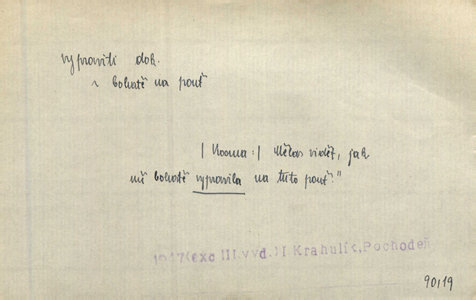 vypraviti dok.
~ bohatě na pouť
| Kosma: | Mělas vidět, jak
mě bohatě vypravila na tuto pouť."
1947(exc III.vyd.)I Krahulík,Pochodeň
90/19